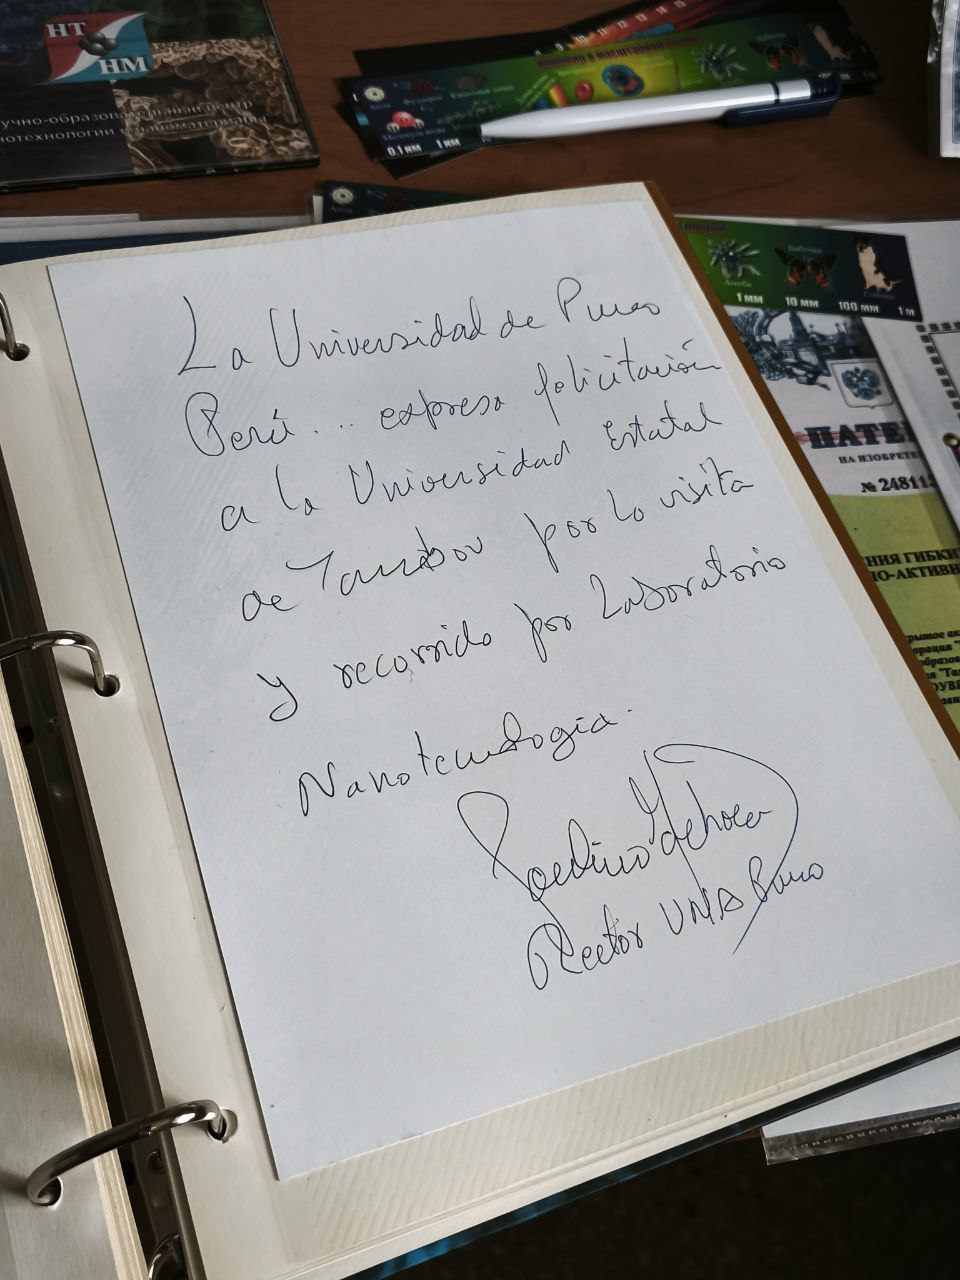 НТ
НМ
учно-образовательный центр
нотехнологии и наноматериалы
0.1 нм 1 нм
Бабочка
Амеба
1 мм 10 мм 100 мм 1 м
ПАТЕ
НА ИЗОБРЕТЕ
№ 24811
НИЯ ГИБКИ
НО-АКТИВН
La Universidad de Puno
Perú... expresa felicitación
a la Universidad Estatal
de Tambov por la visita
y recorrido por Laboratorio
Nanotecnología.
Rector UNA Puno